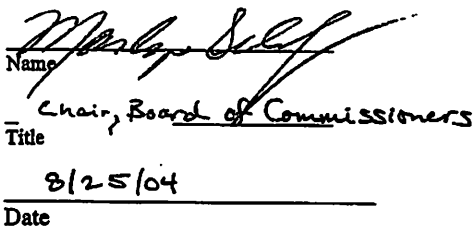 Name
Chair, Board of Commissioners
Title
8/25/04
Date